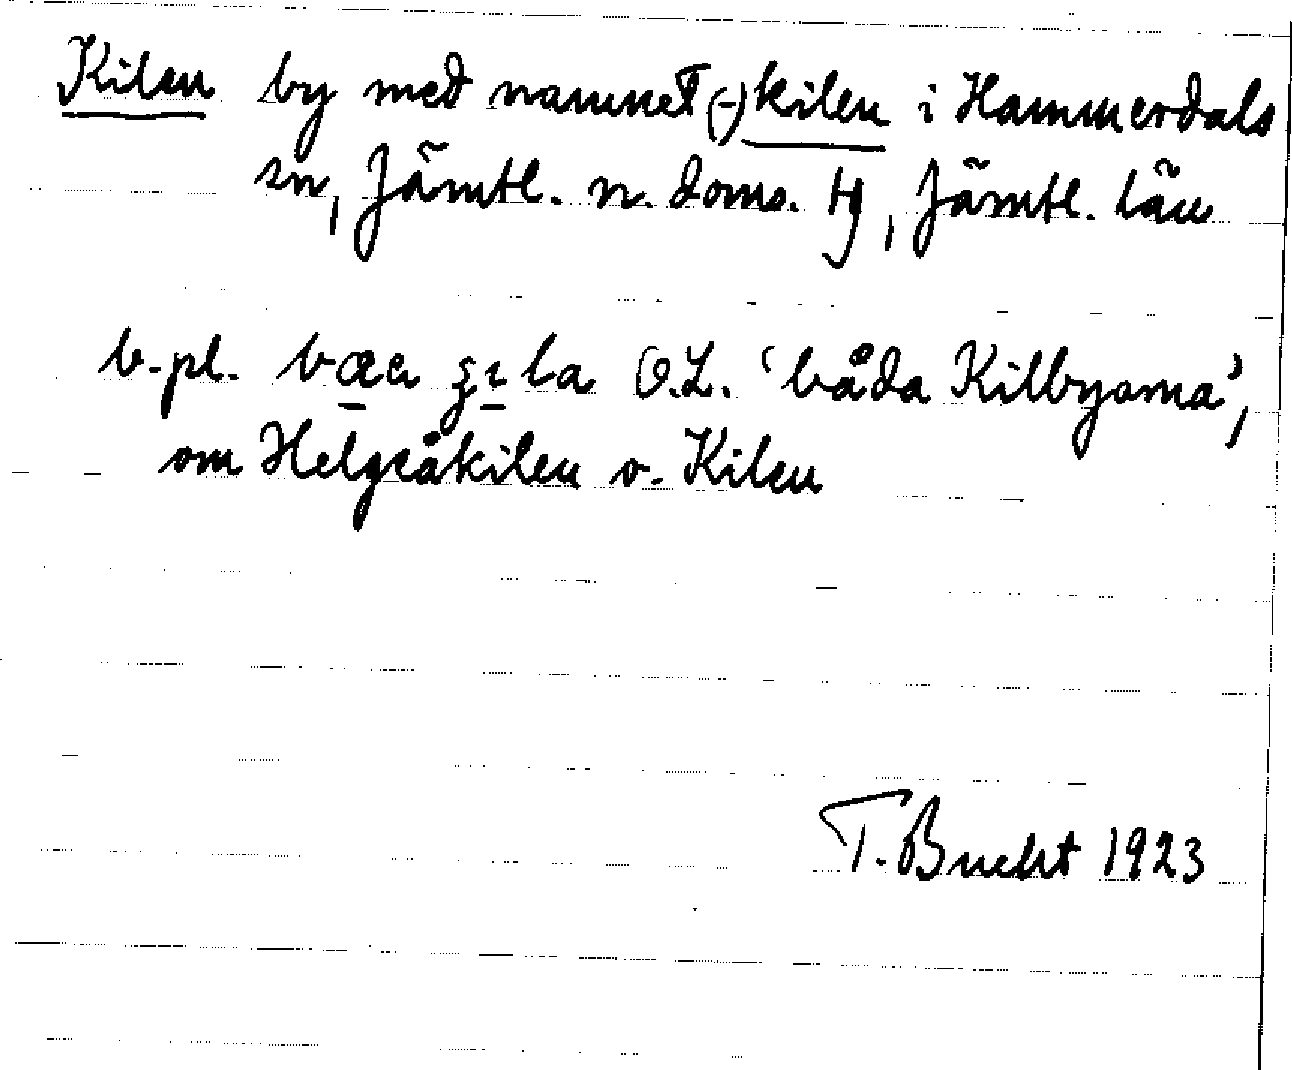 Kilen by med namnet (-)kilen i Hammerdals
sn, Jämtl. n. doms. tg, Jämtl. län
b-pl. O.L. 'båda Kilbyarna',
om Helgeåkilen o. Kilen
T. Bucht 1923